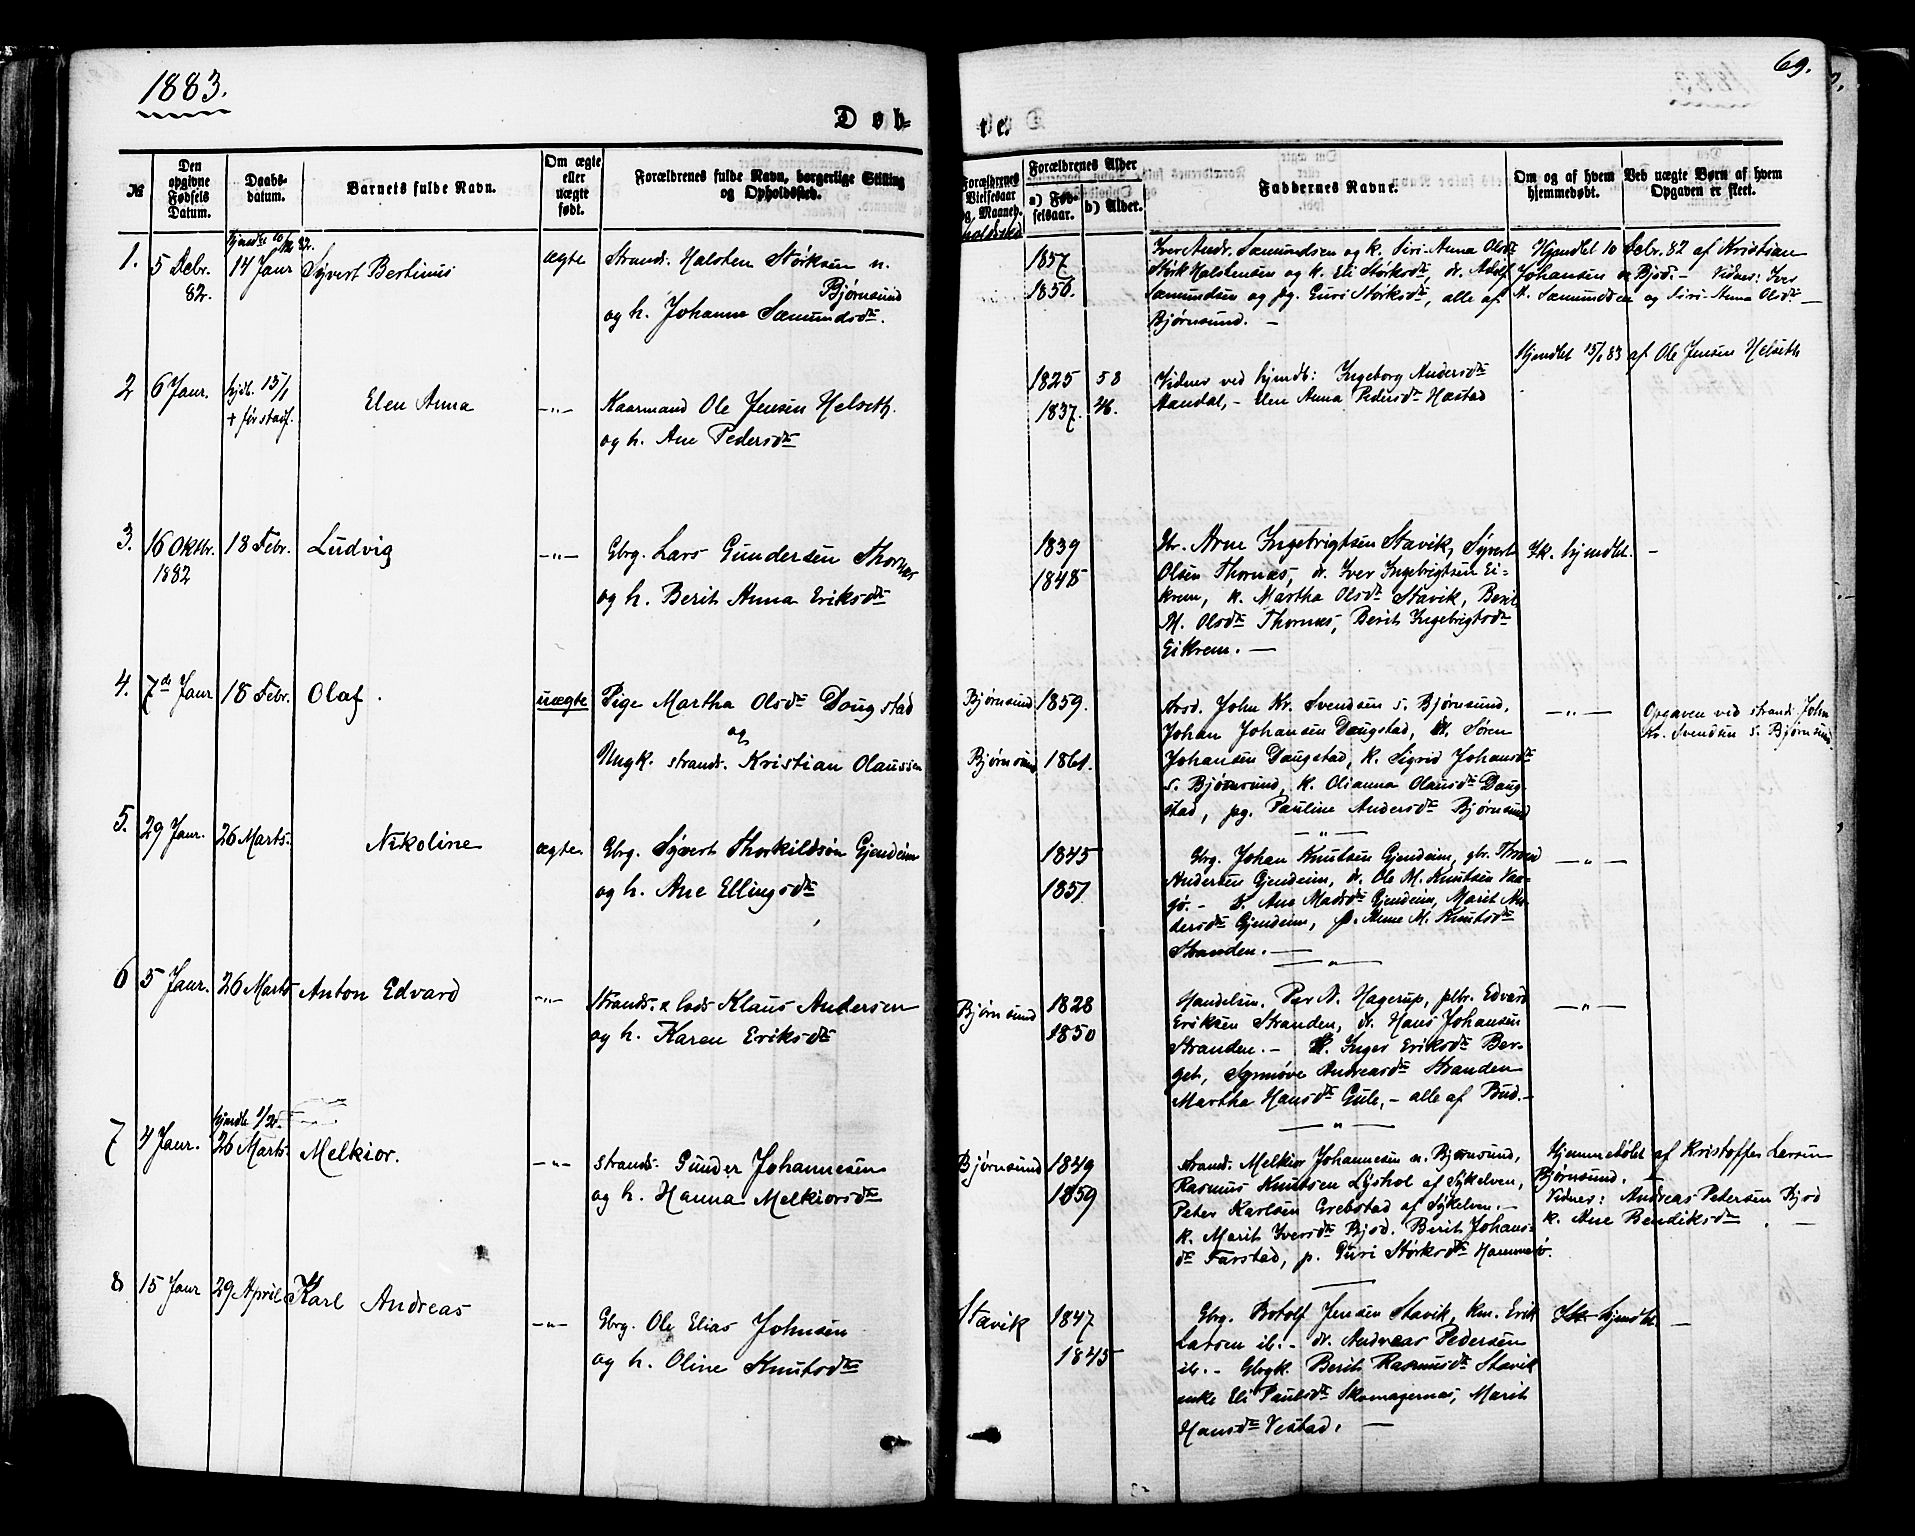 1883.
69.
Døb-
te.
№
Den opgivne Fødsels Datum.
Daabs-datum.
Barnets fulde Navn.
Om ægte eller uægte født.
Forældrenes fulde Navn, borgerlige Stilling og Opholdssted.
Forældrenes Vielsesaar og Maaned.
Forældrenes Alder
a) Fødselsaar.
b) Alder.
Faddernes Navne.
Om og af hvem hjemmedøbt.
Ved uægte Børn af hvem Opgaven er skeet.
1.
5 Debr. 82.
hjmdbt 10/12 82.
14 Janr
Syvert Bertinus
ægte
Strands. Halsten Størksen n. Bjørnsund
og h. Johanna Sæmundsdtr.
1857.
1856.
Iver Andr. Sæmundsen og k. Siri-Anna Olsdtr
Størk Halstensen og k. Eli Størksdtr, dr. Adolf
Sæmundsen og pg. Guri Størksdtr, alle af
Bjørnsund. —
Hjmdbt 10 Debr. 82 af Kristian
Johansen Bjsd. – Vidner: Iver
A. Sæmundsen og Siri-Anna Olsdtr —
2
6 Janr.
hjdb. 15/1
+ før stadf.
Elen Anna
—"—
Kaarmand Ole Jensen Helseth.
og h. Ane Pedersdtr
1825
58
1837.
46.
Vidner ved hjmdb: Ingeborg Andersdtr
Aandal, – Elen Anna Pedersdtr Hastad
Hjmdbt 15/1 83 af Ole Jensen Helseth
3.
16 Oktbr.
1882
18 Febr.
Ludvig
—"—
Gbrg. Lars Gundersen Thornæs
og h. Berit Anna Eriksdtr
1839
1848
Gbr. Arne Ingebrigtsen Stavik, Syvert
Olsen Thornæs, dr. Iver Ingebrigtsen Ei-
krem, k. Martha Olsdtr Stavik, Berit
M. Olsdtr Thornæs, Berit Ingebrigtsdtr
Eikrem. —
Ik. hjmdbt.
—
4.
7de Janr
18 Febr.
Olaf.
uægte
Pige Martha Olsdtr Dougstad
og
Ungk. strands. Kristian Olaussen
Bjørnsund
1859.
Bjørnsund
1861.
Strd. John Kr. Svendsen s. Bjørnsund,
Johan Johansen Dougstad, Søren
Johansen Dougstad, k. Sigrid Johansdtr
s. Bjørnsund, k. Olianna Olausdtr Doug-
stad, pg. Pauline Andersdtr Bjørnsund
—"—
Opgaven ved strands. John
Kr. Svendsen s. Bjørnsund.
5.
29 Janr.
26 Marts.
Nikoline
ægte.
Gbrg. Syvert Thorkildsøn Gjendeim
og h. Ane Ellingsdtr
1845
1857
Gbrg. Johan Knutsen Gjendeim, gbr. Thrond
Andersen Gjendeim, dr. Ole M. Knutsen Vaa-
gø. – k. Ane Madsdtr Gjendeim, Marit An-
dersdtr Gjendeim, p. Anne M. Knutsdtr
Stranden. —
—"—
6
5 Janr.
26 Marts
Anton Edvard
—"—
Strands. & lods Klaus Andersen
og h. Karen Eriksdtr
Bjørnsund
1828
1850
Handelsm. Per A. Hagerup, Edvard
Eriksen Stranden, dr. Hans Johansen
Stranden. – k. Inger Eriksdtr Ber-
get, Synnøve Andreasdtr Stranden
Martha Hansdtr Gule, – alle af Bud. –
—"—
7
4 Janr.
hjmdb 1/2.
26 Marts.
Melkior.
—"—
strands. Gunder Johannesen
og h. Hanna Melkiorsdtr
Bjørnsund
1849
1859
strands. Melkior Johannesen n. Bjørnsund,
Rasmus Knutsen Lyshol af Sykelven,
Peter Karlsen Grebstad af Sykelven. –
k. Marit Iversdtr Bjsd. Berit Johans-
dtr Farstad, p. Guri Størksdtr Hammersø.
Hjemmedøbt af Kristoffer Larsen
Bjørnsund.
Vidner: Andreas Petersen Bjsd
k. Ane Bendiksdtr. —
8
15 Janr
29 April
Karl Andreas
—"—
Gbrg. Ole Elias Johnsen
og h. Oline Knutsdtr
Stavik
1847
1845
Gbrg. Botolf Jensen Stavik, km. Erik
Larsen ib. – dr. Andreas Pedersen
ib. – Gbrgk. Berit Rasmusdtr Stavik
enke Eli Paulsdtr Skomagernæs, Marit
Hansdtr Vestad. —
Ik. hjmdbt.
—